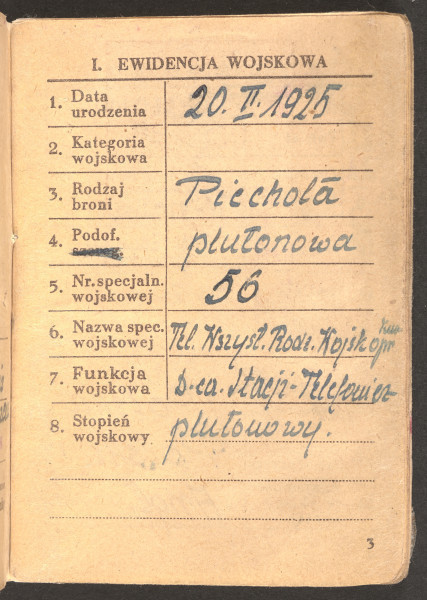 I. EWIDENCJA WOJSKOWA
1. Data urodzenia 20. II. 1925
2. Kategoria wojskowa
3. Rodzaj broni Piechota
4. Podof. plutonowa
5. Nr. specjaln. wojskowej 56
6. Nazwa spec. wojskowej Tel. Wszyst. Rodz. Wojsk
7. Funkcja wojskowa D-ca. Stacji-Telefonicz
8. Stopień wojskowy plutonowy.
3